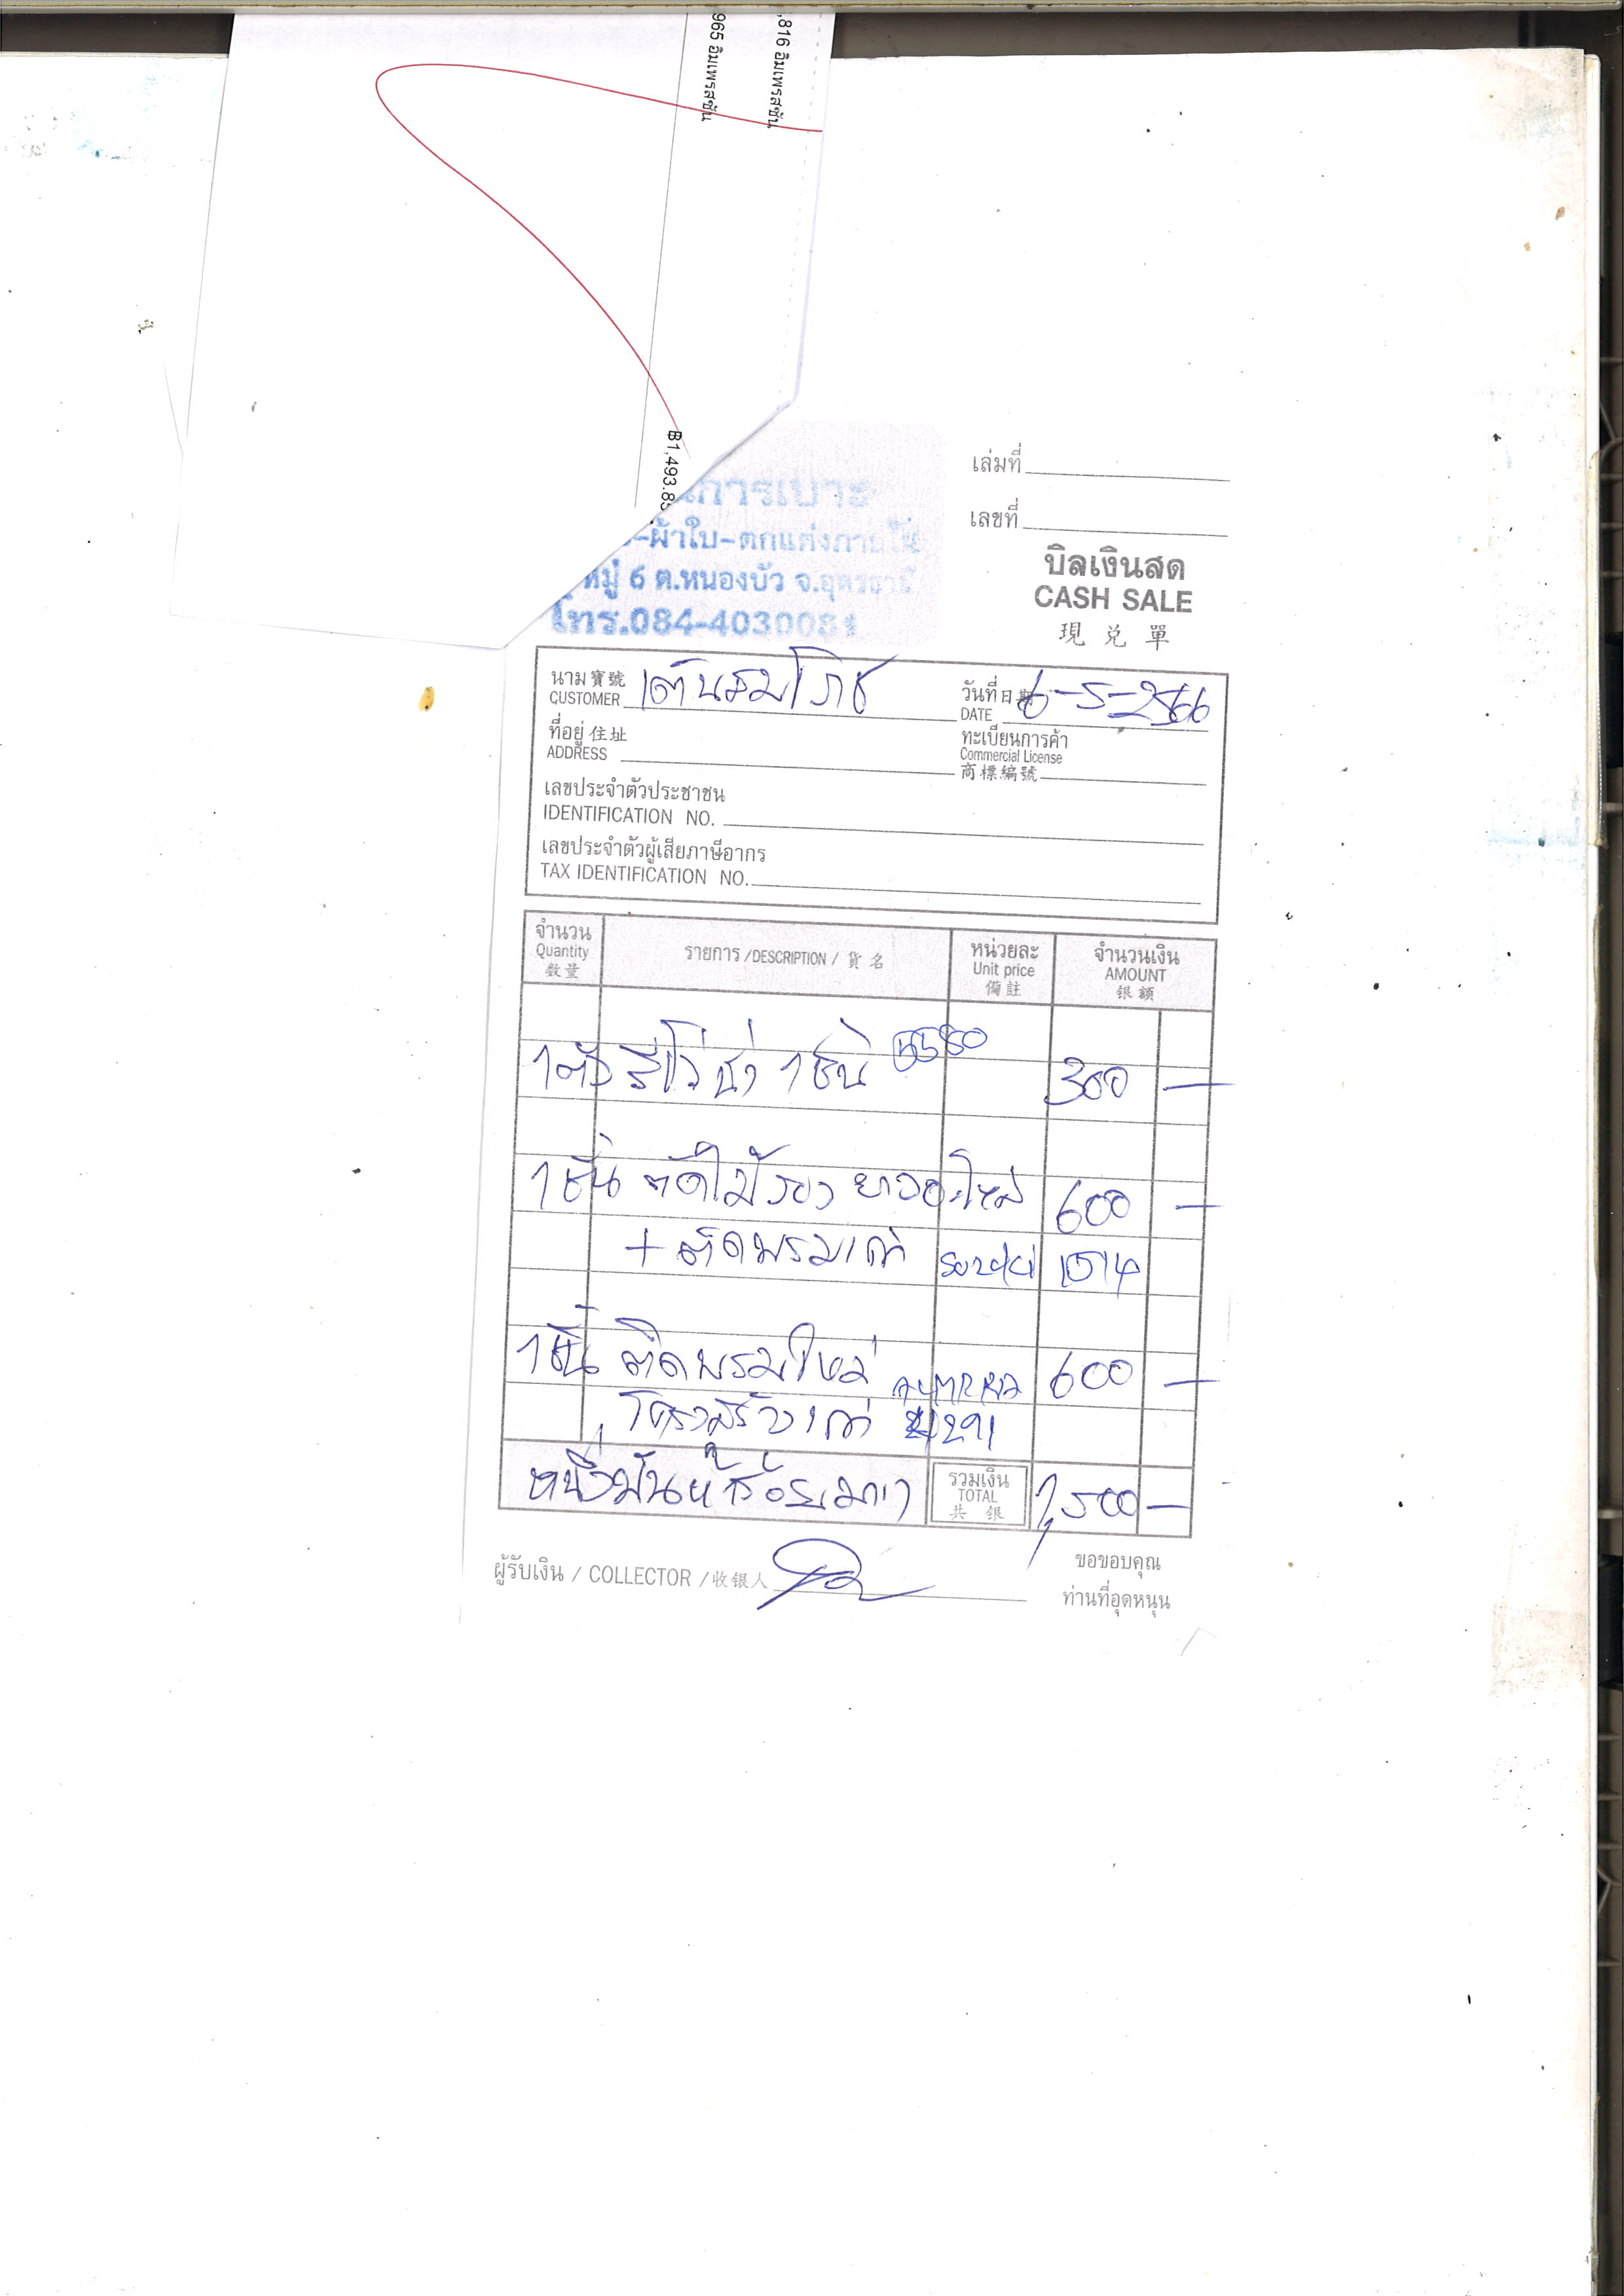 ,816 อิมเพรสชั่น
965 อิมเพรสชั่น
฿1,493.8
นการเบาะ
-ผ้าใบ-ตกแต่งภายใน
หมู่ 6 ต.หนองบัว จ.อุดรธานี
โทร.084-4030081
เล่มที่
เลขที่
บิลเงินสด
CASH SALE
現兌單
นาม寶號
CUSTOMER เต้นสมโภช
วันที่日期
DATE 6-5-2566
ที่อยู่住址
ADDRESS
ทะเบียนการค้า
Commercial License
商標編號
เลขประจำตัวประชาชน
IDENTIFICATION NO.
เลขประจำตัวผู้เสียภาษีอากร
TAX IDENTIFICATION NO.
จำนวน
Quantity
数量
รายการ /DESCRIPTION / 貨名
หน่วยละ
Unit price
備註
จำนวนเงิน
AMOUNT
银額
1 ตัว 1 ชิ้น 300 -
1 ชิ้น ตัดไม้รอง 600 -
+ ติดพรมเก่า 1514
1 ชิ้น ติดพรมใหม่ 600 -
โครงสร้างเก่า 1291
หนึ่งพันห้าร้อย รวมเงิน 1,500 -
TOTAL
共银
ผู้รับเงิน / COLLECTOR /收银人
ขอขอบคุณ
ท่านที่อุดหนุน